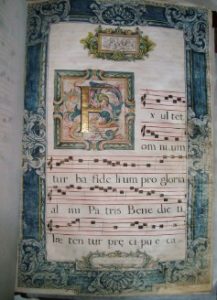 E x ul tet
om ni um
tur ba fide lium pro gloria
al mi Pa tris Bene dic ti
læ ten tur pręci pu e ca